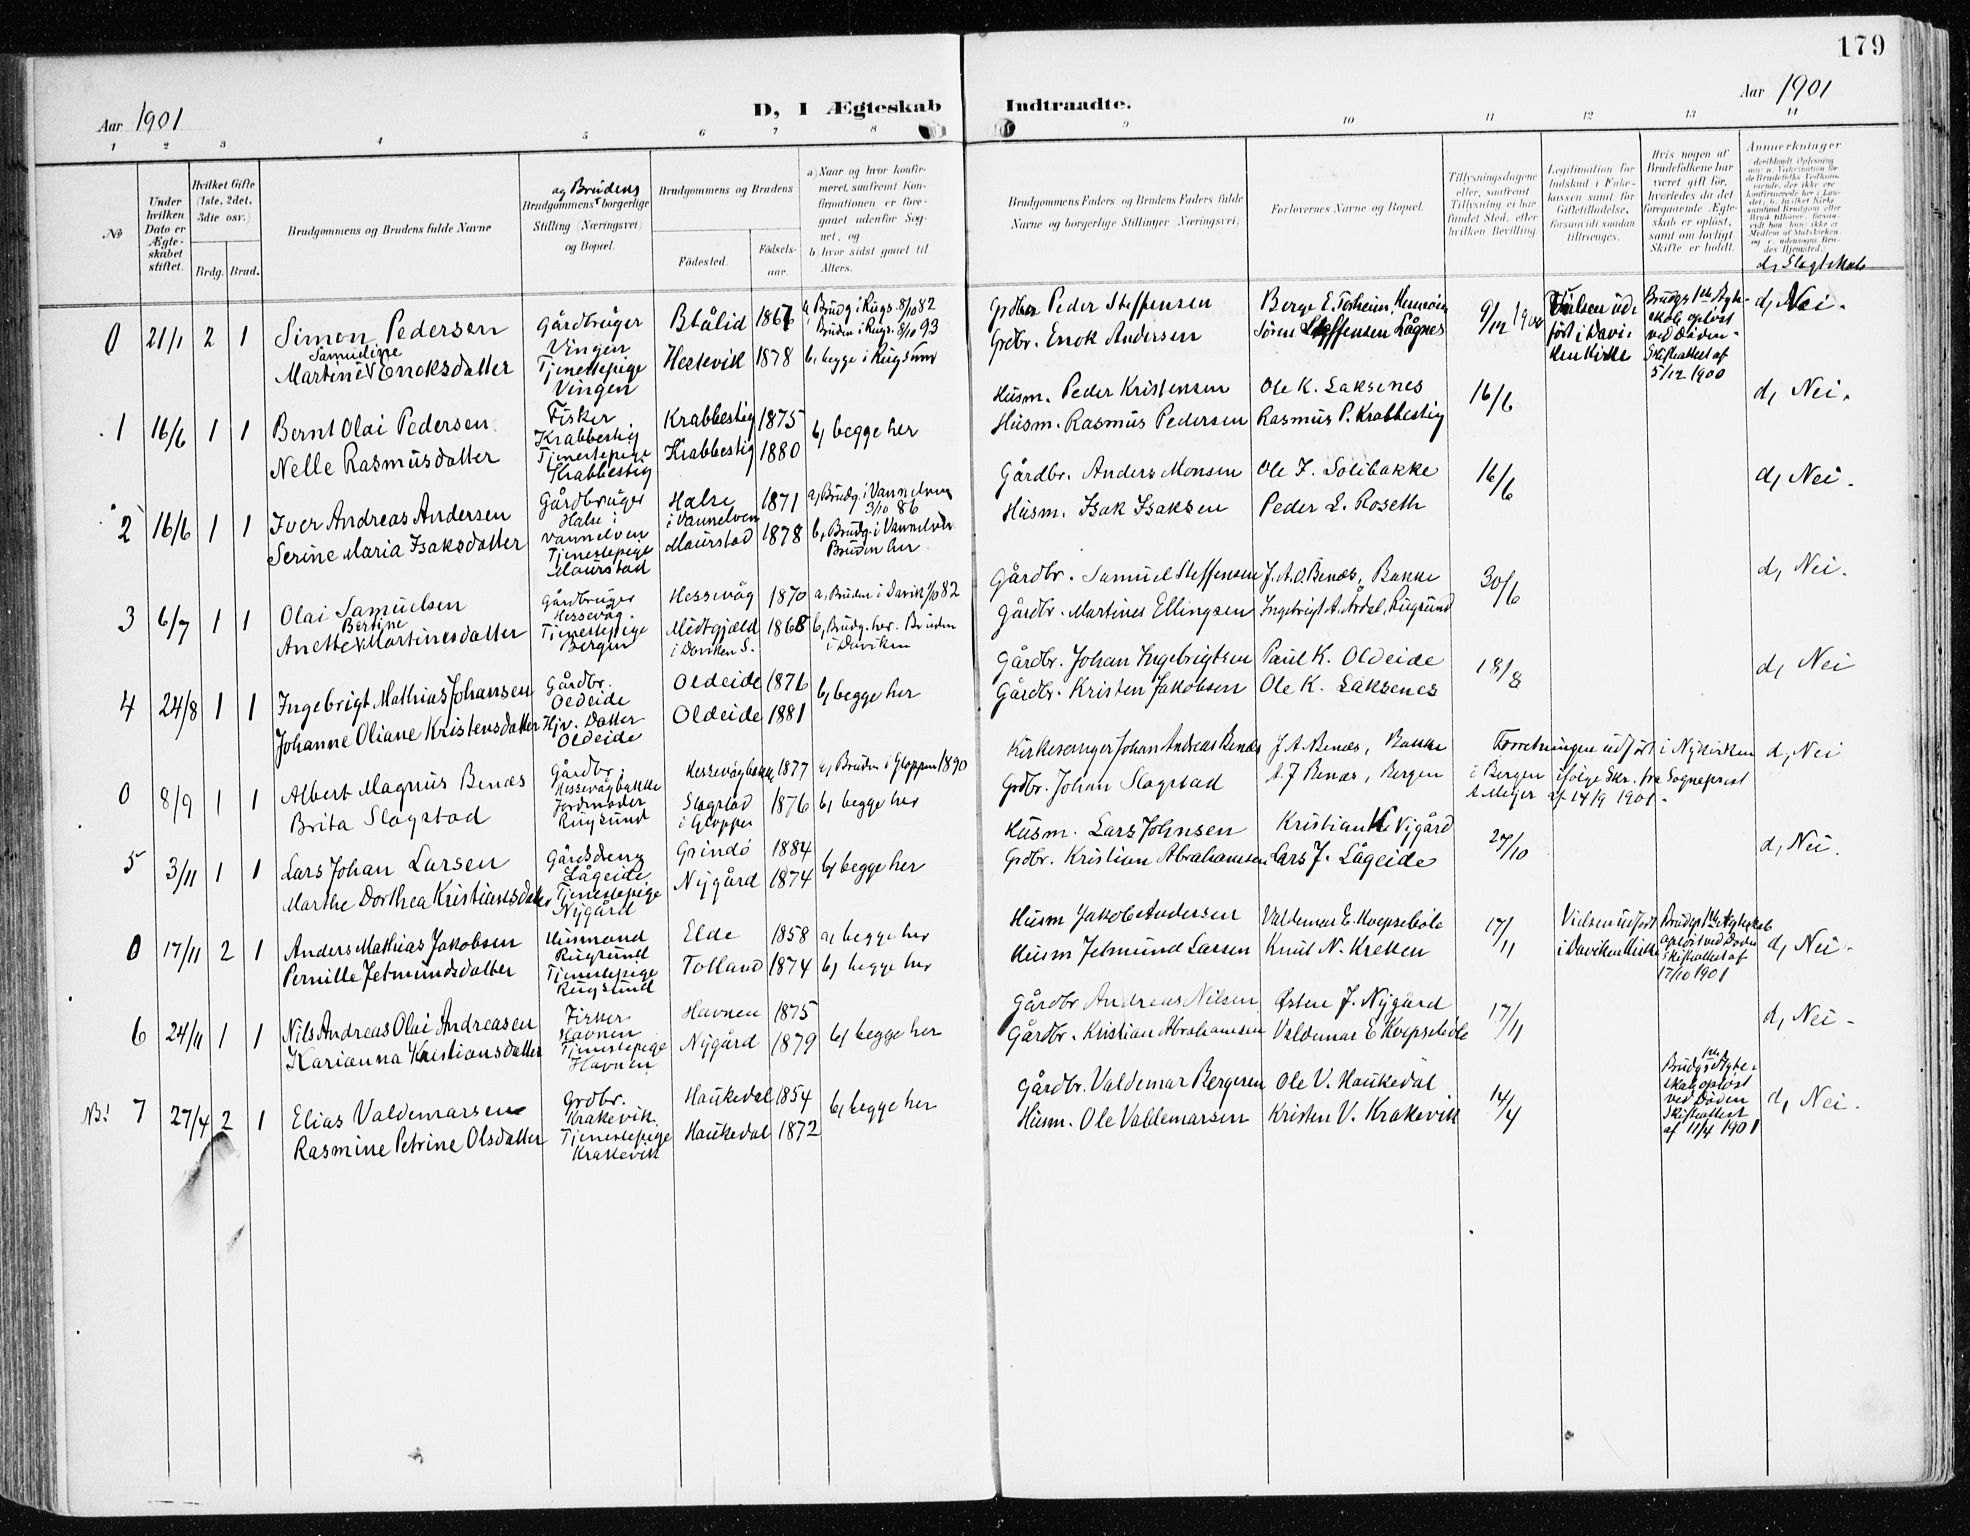 179
Aar 1901
D, I Ægteskab Indtraadte.
Aar 1901
1 2 3 4 5 6 7 8 9 10 11 12 13 14
No
Under hvilken Dato er Ægteskabet stiftet.
Hvilket Gifte (1ste, 2det, 3die osv.)
Brdg. Brud.
Brudgommens og Brudens fulde Navne
Brudgommens og Brudens borgerlige Stilling (Næringsvei) og Bopæl.
Brudgommens og Brudens
Fødested.
Fødselsaar.
a) Naar og hvor konfirmeret, saafremt Konfirmationen er foregaaet udenfor Sognet, og
b) hvor sidst gaaet til Alters.
Brudgommens Faders og Brudens Faders fulde Navne og borgerlige Stillinger (Næringsvei)
Forlovernes Navne og Bopæl.
Tillysningsdagene eller, saafremt Tillysning ei har fundet Sted, efter hvilken Bevilling.
Legitimation for Indskud i Enkekassen samt for Giftetilladelse, forsaavidt saadan tiltrænges.
Hvis nogen af Brudefolkene har været gift før, hvorledes da det foregaaende Ægteskab er opløst, samt om lovligt Skifte er holdt.
Anmerkninger
d, Slægtskab
0 21/1 2 1 Simon Pedersen Gårdbruger Vingen Btålid 1867 a, Brudg. i Rugs. 8/10 82 Grdbr. Peder Steffensen Berge E. 9/12 1900 d, Nei.
Martine Samudine Enoksdatter Tjenestepige Vingen Hessevik 1878 Bruden i Rugs. 8/10 93 b, begge i Rugsund Grdbr. Enok Andersen Søren Steffensen Lågnes
Vielsen udført i Daviken Kirke
Brudgs 1ste Ægteskab opløst ved Døden Skifteattest af 5/12 1900
1 16/6 1 1 Bernt Olai Pedersen Fisker Krabbestig Krabbestig 1875 b, begge her Husm. Peder Kristensen Ole K. Laksenes 16/6 d, Nei.
Nelle Rasmusdatter Tjenestepige Krabbestig Krabbestig 1880 Husm. Rasmus Pedersen Rasmus P. Krabbestig
2 16/6 1 1 Iver Andreas Andersen Gårdbruger Halse i Vannelven Halse i Vannelven 1871 a, Brudg. i Vannelven 3/10 86 Gårdbr. Anders Monsen Ole J. Solibakke 16/6 d, Nei.
Serine Maria Isaksdatter Tjenestepige Maurstad Maurstad 1878 b, Brudg. i Vannelven Bruden her Husm. Isak Isaksen Peder L. Roseth
3 6/7 1 1 Olai Samuelsen Gårdbruger Hessevåg Hessevåg 1870 a, Bruden i Davik 1/10 82 Gårdbr. Samuel Steffensen J. A. O. Benæs, Bakke 30/6 d, Nei.
Anette Bertine Martinesdatter Tjenestepige Bergen Midtgjæld i Daviken S. 1868 b, Brudg. her. Bruden i Daviken Gårdbr. Martines Ellingsen Ingebrigt A. Årdal, Rugsund
4 24/8 1 1 Ingebrigt Mathias Johansen Gårdbr. Oldeide Oldeide 1876 b, begge her Gårdbr. Johan Ingebrigtsen Paul K. Oldeide 18/8 d, Nei
Johanne Oliane Kristensdatter Hjv. Datter Oldeide Oldeide 1881 Gårdbr. Kristen Jakobsen Ole K. Laksenes
0 8/9 1 1 Albert Magnus Benæs Gårdbr. Hessevågbakke Hessevågbakke 1877 a, Bruden i Gloppen 1890 Kirkesanger Johan Andreas Benæs J. A. Benæs, Bakke d, Nei
Brita Slagstad Jordmoder Rugsund Slagstad i Gloppen 1876 b, begge her Grdbr. Johan Slagstad A. J. Benæs, Bergen
Forretningen udført i Nykirken i Bergen ifølge Skr. fra Sogneprest A. Meyer af 14/9 1901.
5 3/11 1 1 Lars Johan Larsen Gårdsdreng Lågeide Grindö 1884 b, begge her Husm. Lars Johnsen Kristian Nygård 27/10 d, Nei.
Marthe Dorthea Kristiansdatter Tjenestepige Nygård Nygård 1874 Grdbr. Kristian Abrahamsen Lars J. Lågeide
0 17/11 2 1 Anders Mathias Jakobsen Husmand Rugsund Elde 1858 a, begge her Husm Jakob Andersen Valdemar E. Koepseböle 17/11 d, Nei.
Pernille Jetmundsdatter Tjenestepige Rugsund Tolland 1874 b, begge her Husm Jetmund Larsen Knut N. Kretten
Vielsen udført i Daviken Kirke
Brudgs 1ste Ægteskab opløst ved Døden Skifteattest af 17/10 1901
6 24/11 1 1 Nils Andreas Olai Andreasen Fisker Havnen Havnen 1875 b, begge her Gårdbr Andreas Nilsen Østen J. Nygård 17/11 d, Nei
Karianna Kristiansdatter Tjenestepige Havnen Nygård 1879 Gårdbr. Kristian Abrahamsen Valdemar E Koepseböle
NB! 7 27/4 2 1 Elias Valdemarsen Grdbr. Krakevik Haukedal 1854 b, begge her Gårdbr. Valdemar Bergesen Ole V. Haukedal 14/4 d, Nei.
Rasmine Petrine Olsdatter Tjenestepige Krakevik Haukedal 1872 Husm. Ole Valdemarsen Kristen V. Krakevik
Brudgs 1ste Ægteskab opløst ved Døden Skifteattest af 11/4 1901